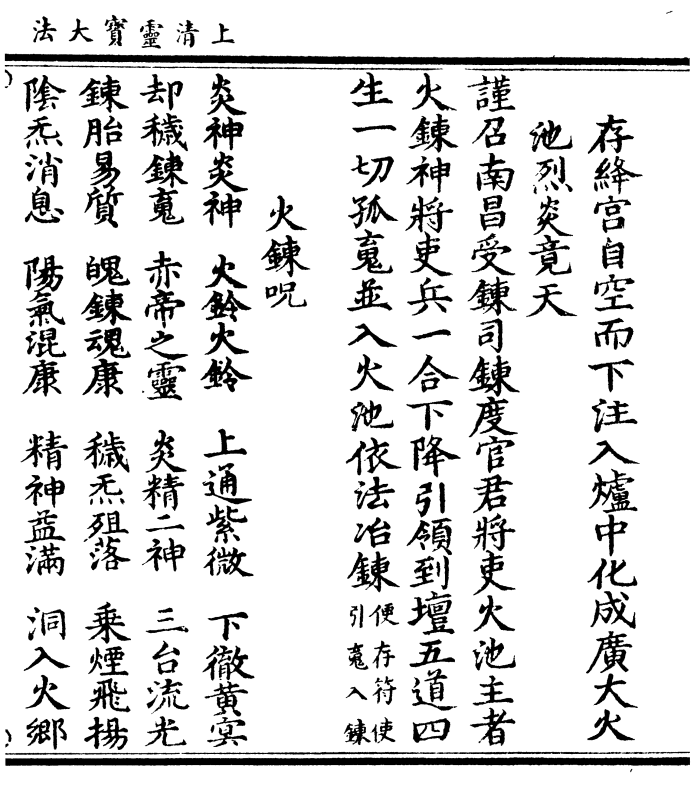 上清靈寶大法
存絳宮自空而下注入爐中化成廣大火
池烈炎竟天
謹召南昌受鍊司鍊度官君將吏火池主者
火鍊神將吏兵一合下降引領到壇五道四
生一切孤䰟並入火池依法冶鍊便存符使引䰟入鍊
火鍊呪
炎神炎神 火鈴火鈴 上通紫微 下徹黃㝠
却穢鍊䰟 赤帝之靈 炎精二神 三台流光
鍊胎易質 魄鍊魂康 穢炁殂落 乗煙飛揚
陰炁消息 陽氣混康 精神益滿 洞入火鄉